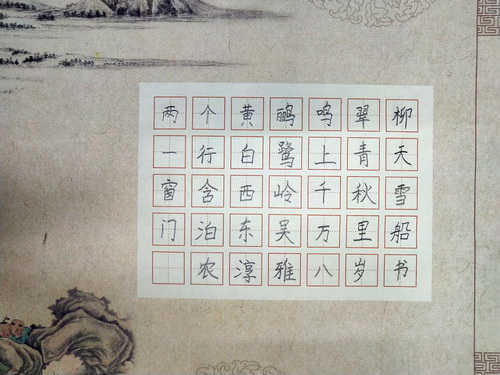 两个黄鹂鸣翠柳
一行白鹭上青天
窗含西岭千秋雪
门泊东吴万里船
农淳雅八岁书